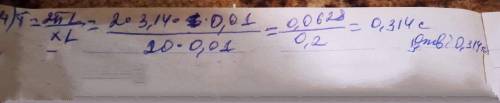 4) T = 2π L / x L = 2 · 3,14 · 0,01 / 20 · 0,01 = 0,0628 / 0,2 = 0,314 с
Ответ: 0,314 с